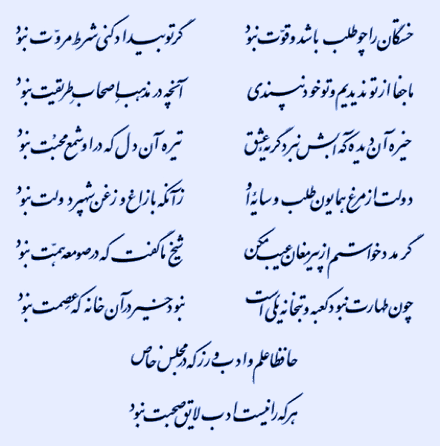 خستگان را چو طلب باشد و قوّت نبود گر تو بیداد کنی شرط مروّت نبود
ما جفا از تو ندیدیم و تو خود نپسندی آنچه در مذهب اصحاب طریقت نبود
خیره آن دیده که آبش نبرد گریه عشق تیره آن دل که در او شمع محبّت نبود
دولت از مرغ همایون طلب و سایه او زآنکه با زاغ و زغن شهپر دولت نبود
گر مدد خواستم از پیر مغان عیب مکن شیخ ما گفت که در صومعه همّت نبود
چون طهارت نبود کعبه و بتخانه یکی است نبود خیر در آن خانه که عصمت نبود
حافظا علم و ادب ورز که در مجلس خاص
هر که را نیست ادب لایق صحبت نبود